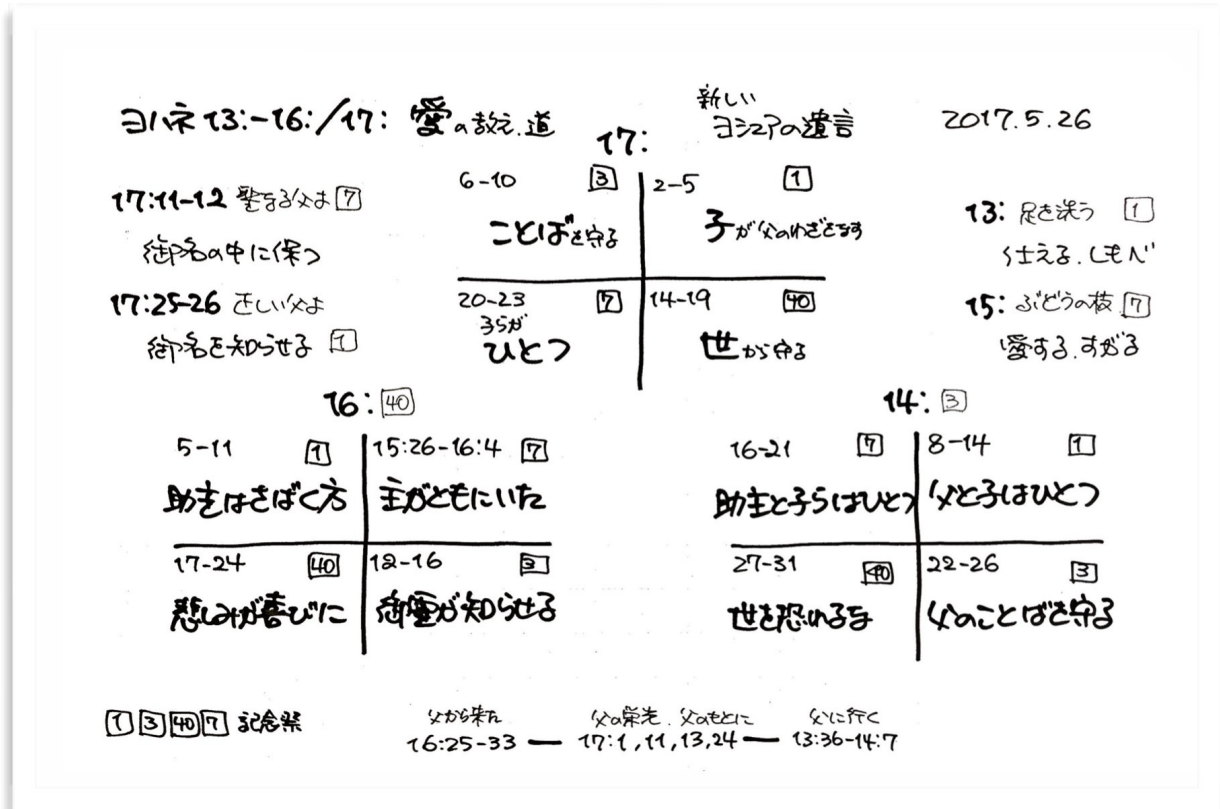 ヨハネ 13:-16:/17: 愛の教え.道
新しい
ヨシュアの遺言
2017.5.26
17:11-12 聖なる父よ 7
御名の中に保つ
17:25-26 正しい父よ
御名を知らせる 1
17:
6-10 3
ことばを守る
2-5 1
子が父のわざをなす
20-23 7
子らが
ひとつ
14-19 40
世から守る
13: 足を洗う 1
仕える.しもべ
15: ぶどうの枝 7
愛する.すがる
16: 40
5-11 1
助主はさばく方
15:26-16:4 7
主がともにいた
17-24 40
悲しみが喜びに
12-16 3
御霊が知らせる
14: 3
16-21 7
助主と子らはひとつ
8-14 1
父と子はひとつ
27-31 40
世を恐れるな
22-26 3
父のことばを守る
1 3 40 7 記念祭
父から来た 父の栄光.父のもとに 父に行く
16:25-33 — 17:1,11,13,24 — 13:36-14:7